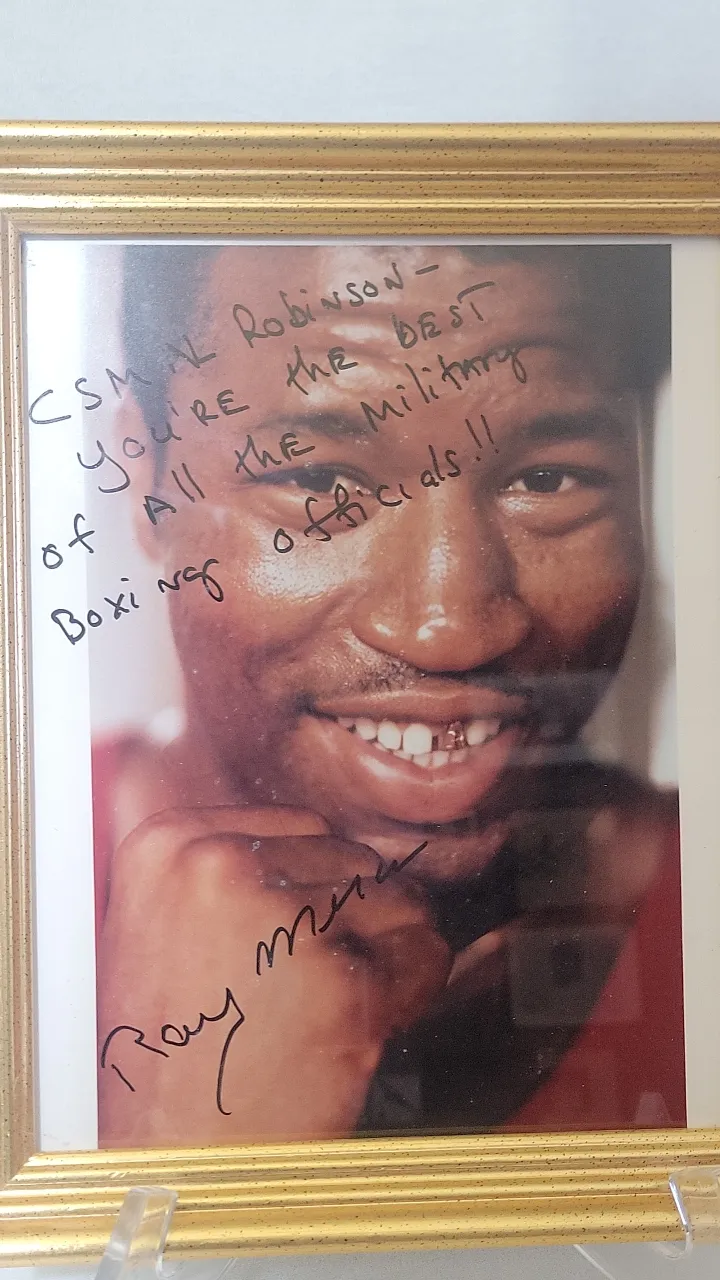 CSM AL Robinson-
You'RE the BEST
of All the Military
Boxing officials!!
Ray Mercer